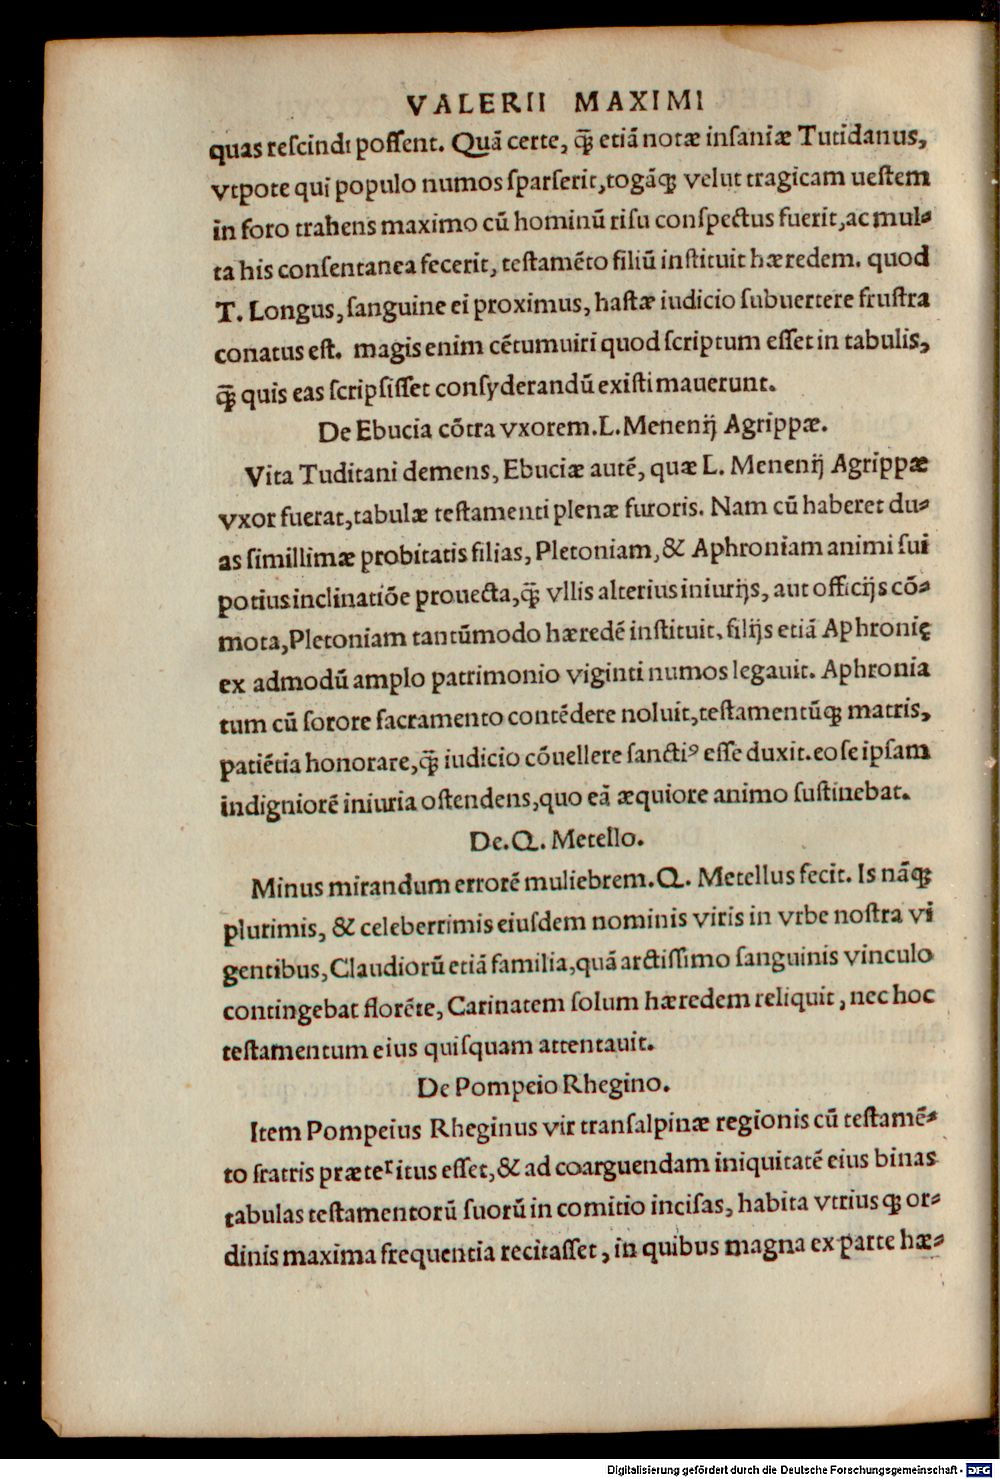 VALERII MAXIMI
quas reſcindi poſſent. Quã certe, q̃ꝫ etiã notæ inſaniæ Tutidanus,
vtpote qui populo numos ſparſerit, togãqꝫ velut tragicam ueſtem
in foro trahens maximo cũ hominũ riſu conſpectus fuerit, ac mul⸗
ta his conſentanea fecerit, teſtamẽto filiũ inſtituit hæredem. quod
T. Longus, ſanguine ei proximus, haſtæ iudicio ſubuertere fruſtra
conatus eſt. magis enim cẽtumuiri quod ſcriptum eſſet in tabulis,
q̃ꝫ quis eas ſcripſiſſet conſyderandũ exiſtimauerunt.
De Ebucia cõtra vxorem. L. Menenij Agrippæ.
Vita Tuditani demens, Ebuciæ autẽ, quæ L. Menenij Agrippæ
vxor fuerat, tabulæ teſtamenti plenæ furoris. Nam cũ haberet du⸗
as ſimillimæ probitatis filias, Pletoniam, & Aphroniam animi ſui
potius inclinatiõe prouecta, q̃ꝫ vllis alterius iniurijs, aut officijs cõ⸗
mota, Pletoniam tantũmodo hæredẽ inſtituit. filijs etiã Aphronię
ex admodũ amplo patrimonio viginti numos legauit. Aphronia
tum cũ ſorore ſacramento contẽdere noluit, teſtamentũqꝫ matris,
patiẽtia honorare, q̃ꝫ iudicio cõuellere ſanctiꝰ eſſe duxit. eo ſe ipſam
indigniorẽ iniuria oſtendens, quo eã æquiore animo ſuſtinebat.
De. Q. Metello.
Minus mirandum errorẽ muliebrem. Q. Metellus fecit. Is nãqꝫ
plurimis, & celeberrimis eiuſdem nominis viris in vrbe noſtra vi
gentibus, Claudiorũ etiã familia, quã arctiſſimo ſanguinis vinculo
contingebat florẽte, Carinatem ſolum hæredem reliquit, nec hoc
teſtamentum eius quiſquam attentauit.
De Pompeio Rhegino.
Item Pompeius Rheginus vir tranſalpinæ regionis cũ teſtamẽ⸗
to fratris præteritus eſſet, & ad coarguendam iniquitatẽ eius binas
tabulas teſtamentorũ ſuorũ in comitio inciſas, habita vtriusqꝫ or⸗
dinis maxima frequentia recitaſſet, in quibus magna ex parte hæ⸗
Digitalisierung gefördert durch die Deutsche Forschungsgemeinschaft - DFG